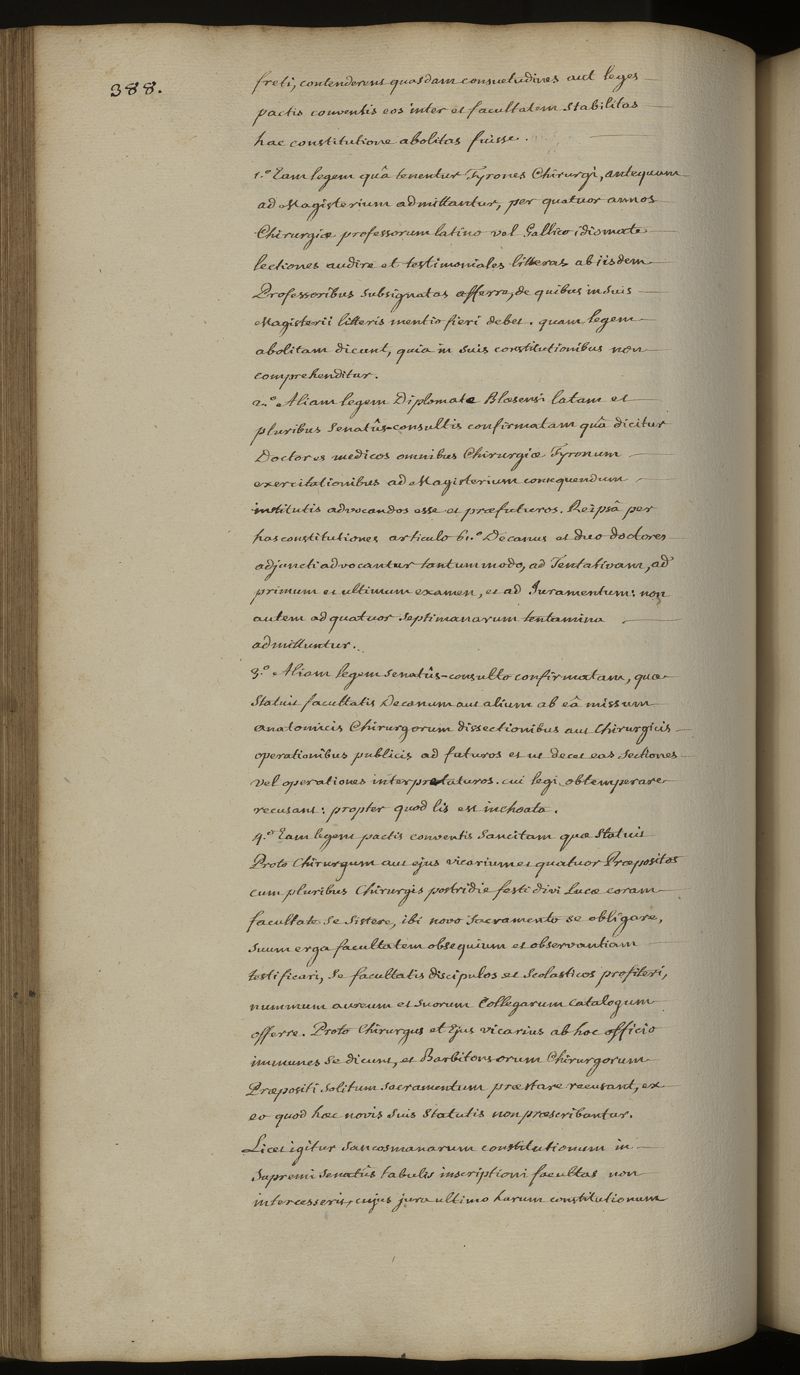 388.
freti, contenderent quasdam consuetudines aut leges
pactis conventis eos inter et facultatem stabilitas
hac constitutione abolitas fuisse.
1.º Eam legem quâ tenentur Tyrones Chirurgi, antequam
ad Magisterium admittantur, per quatuor annos
Chirurgiæ professorum latino vel Gallico idiomate
lectiones audire et testimoniales litteras ab iisdem
Professoribus subsignatas afferre, de quibus in suis
Magisterii litteris mentio fieri debet. quam legem
abolitam dicunt, quia in suis constitutionibus non
comprehenditur.
2.º Aliam legem Diplomate Blæsensi latam et
pluribus Senatûs-consultis confirmatam quâ dicitur
Doctores medicos omnibus Chirurgiæ Tyronum
exercitationibus ad Magisterium consequendum
institutis advocandos esse et præfuturos. Reipsâ per
has constitutiones articulo 61.º Decanus et duo doctores
adjuncti advocantur tantummodo, ad Tentativam, ad
primum et ultimum examen, et ad Juramentum: non
autem ad quatuor septimanarum tentamina
admittuntur.
3.º Aliam legem senatûs-consulto confirmatam, quæ
Statuit facultatis Decanum aut alium ab eâ missum
anatomicis Chirurgorum dissectionibus aut Chirurgicis
operationibus publicis ad futuros et ut decet eas sectiones
vel operationes interpretaturos. cui legi obtemperare
recusant: propter quod lis est inchoata.
4.º Eam legem pactis conventis sancitam quæ Statuit
Proto Chirurgum aut ejus vicarium et quatuor Præpositos
cum pluribus Chirurgis postridie festi divi Lucæ coram
facultate se sistere, ibi novo sacramento se obligare,
suum erga facultatem obsequium et observantiam
testificari, se facultatis discipulos et scolasticos profiteri,
nummum aureum et suorum Collegarum catalogum
offerre. Proto Chirurgus et Ejus vicarius ab hoc officio
immunes se dicunt, et Barbitonsorum Chirurgorum
Præpositi solitum sacramentum præstare recusant, ex
eo quod hæc novis suis statutis non præscribantur.
Licet igitur sancosmanarum constitutionum in
Supremi Senatûs tabulis inscriptioni facultas non
intercesserit, cujus jura ultimo harum constitutionum